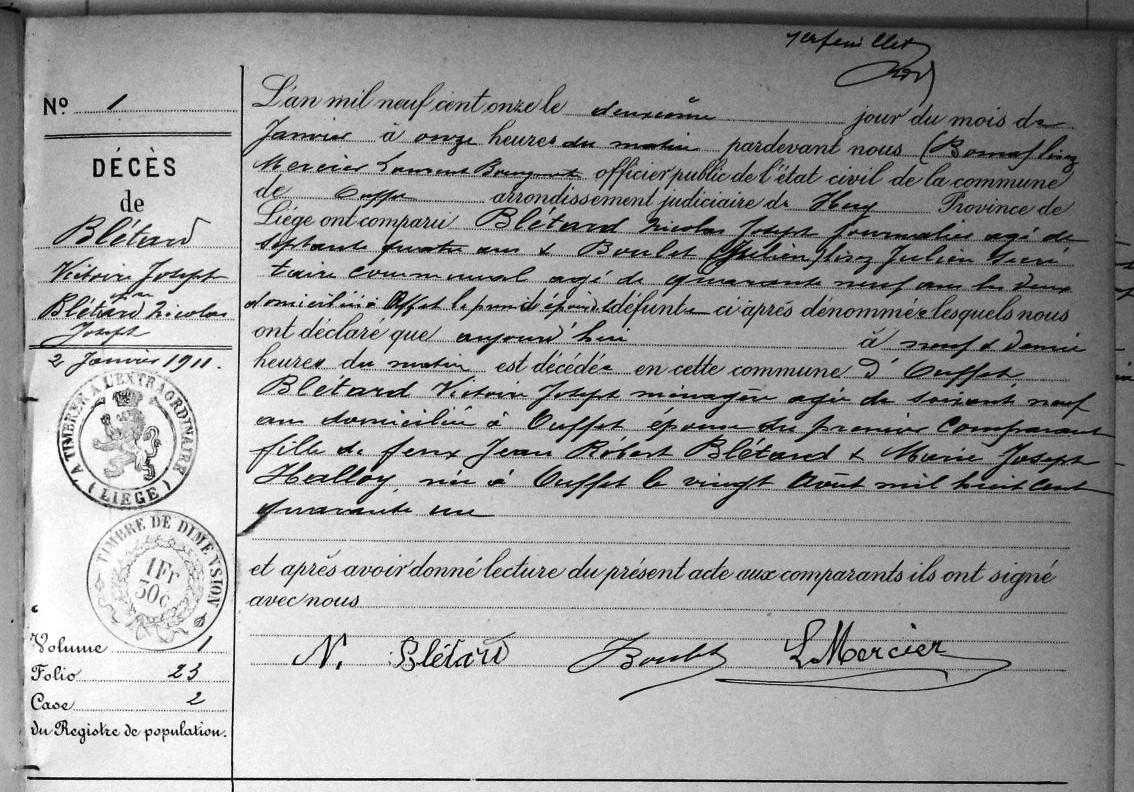 1er feuillet
No 1
DÉCÈS
de
Blétard
Victoire Joseph
Blétard Nicolas
Joseph
2 Janvier 1911.
A TIMBRER A L'EXTRAORDINAIRE
(LIÈGE)
TIMBRE DE DIMENSION
1Fr
30c
Volume 1
Folio 23
Case 2
du Registre de population.
L'an mil neuf cent onze le deuxième jour du mois de
Janvier à onze heures du matin pardevant nous
Mercier Laurent officier public de l'état civil de la commune
de Ouffet arrondissement judiciaire de Huy Province de
Liége ont comparu Blétard Nicolas Joseph journalier agé de
septante quatre ans & Boulet Julien secré
taire communal agé de quarante neuf ans les deux
domiciliés à Ouffet le premier époux défunte ci après dénommée lesquels nous
ont déclaré que aujourd'hui à neuf & demie
heures du matin est décédée en cette commune d'Ouffet
Blétard Victoire Joseph ménagère agée de soixante neuf
ans domiciliée à Ouffet épouse du premier comparant
fille de feux Jean Robert Blétard & Marie Joseph
Halloy, née à Ouffet le vingt Août mil huit cent
quarante une
et après avoir donné lecture du présent acte aux comparants ils ont signé
avec nous
N. Blétard Boulet L Mercier